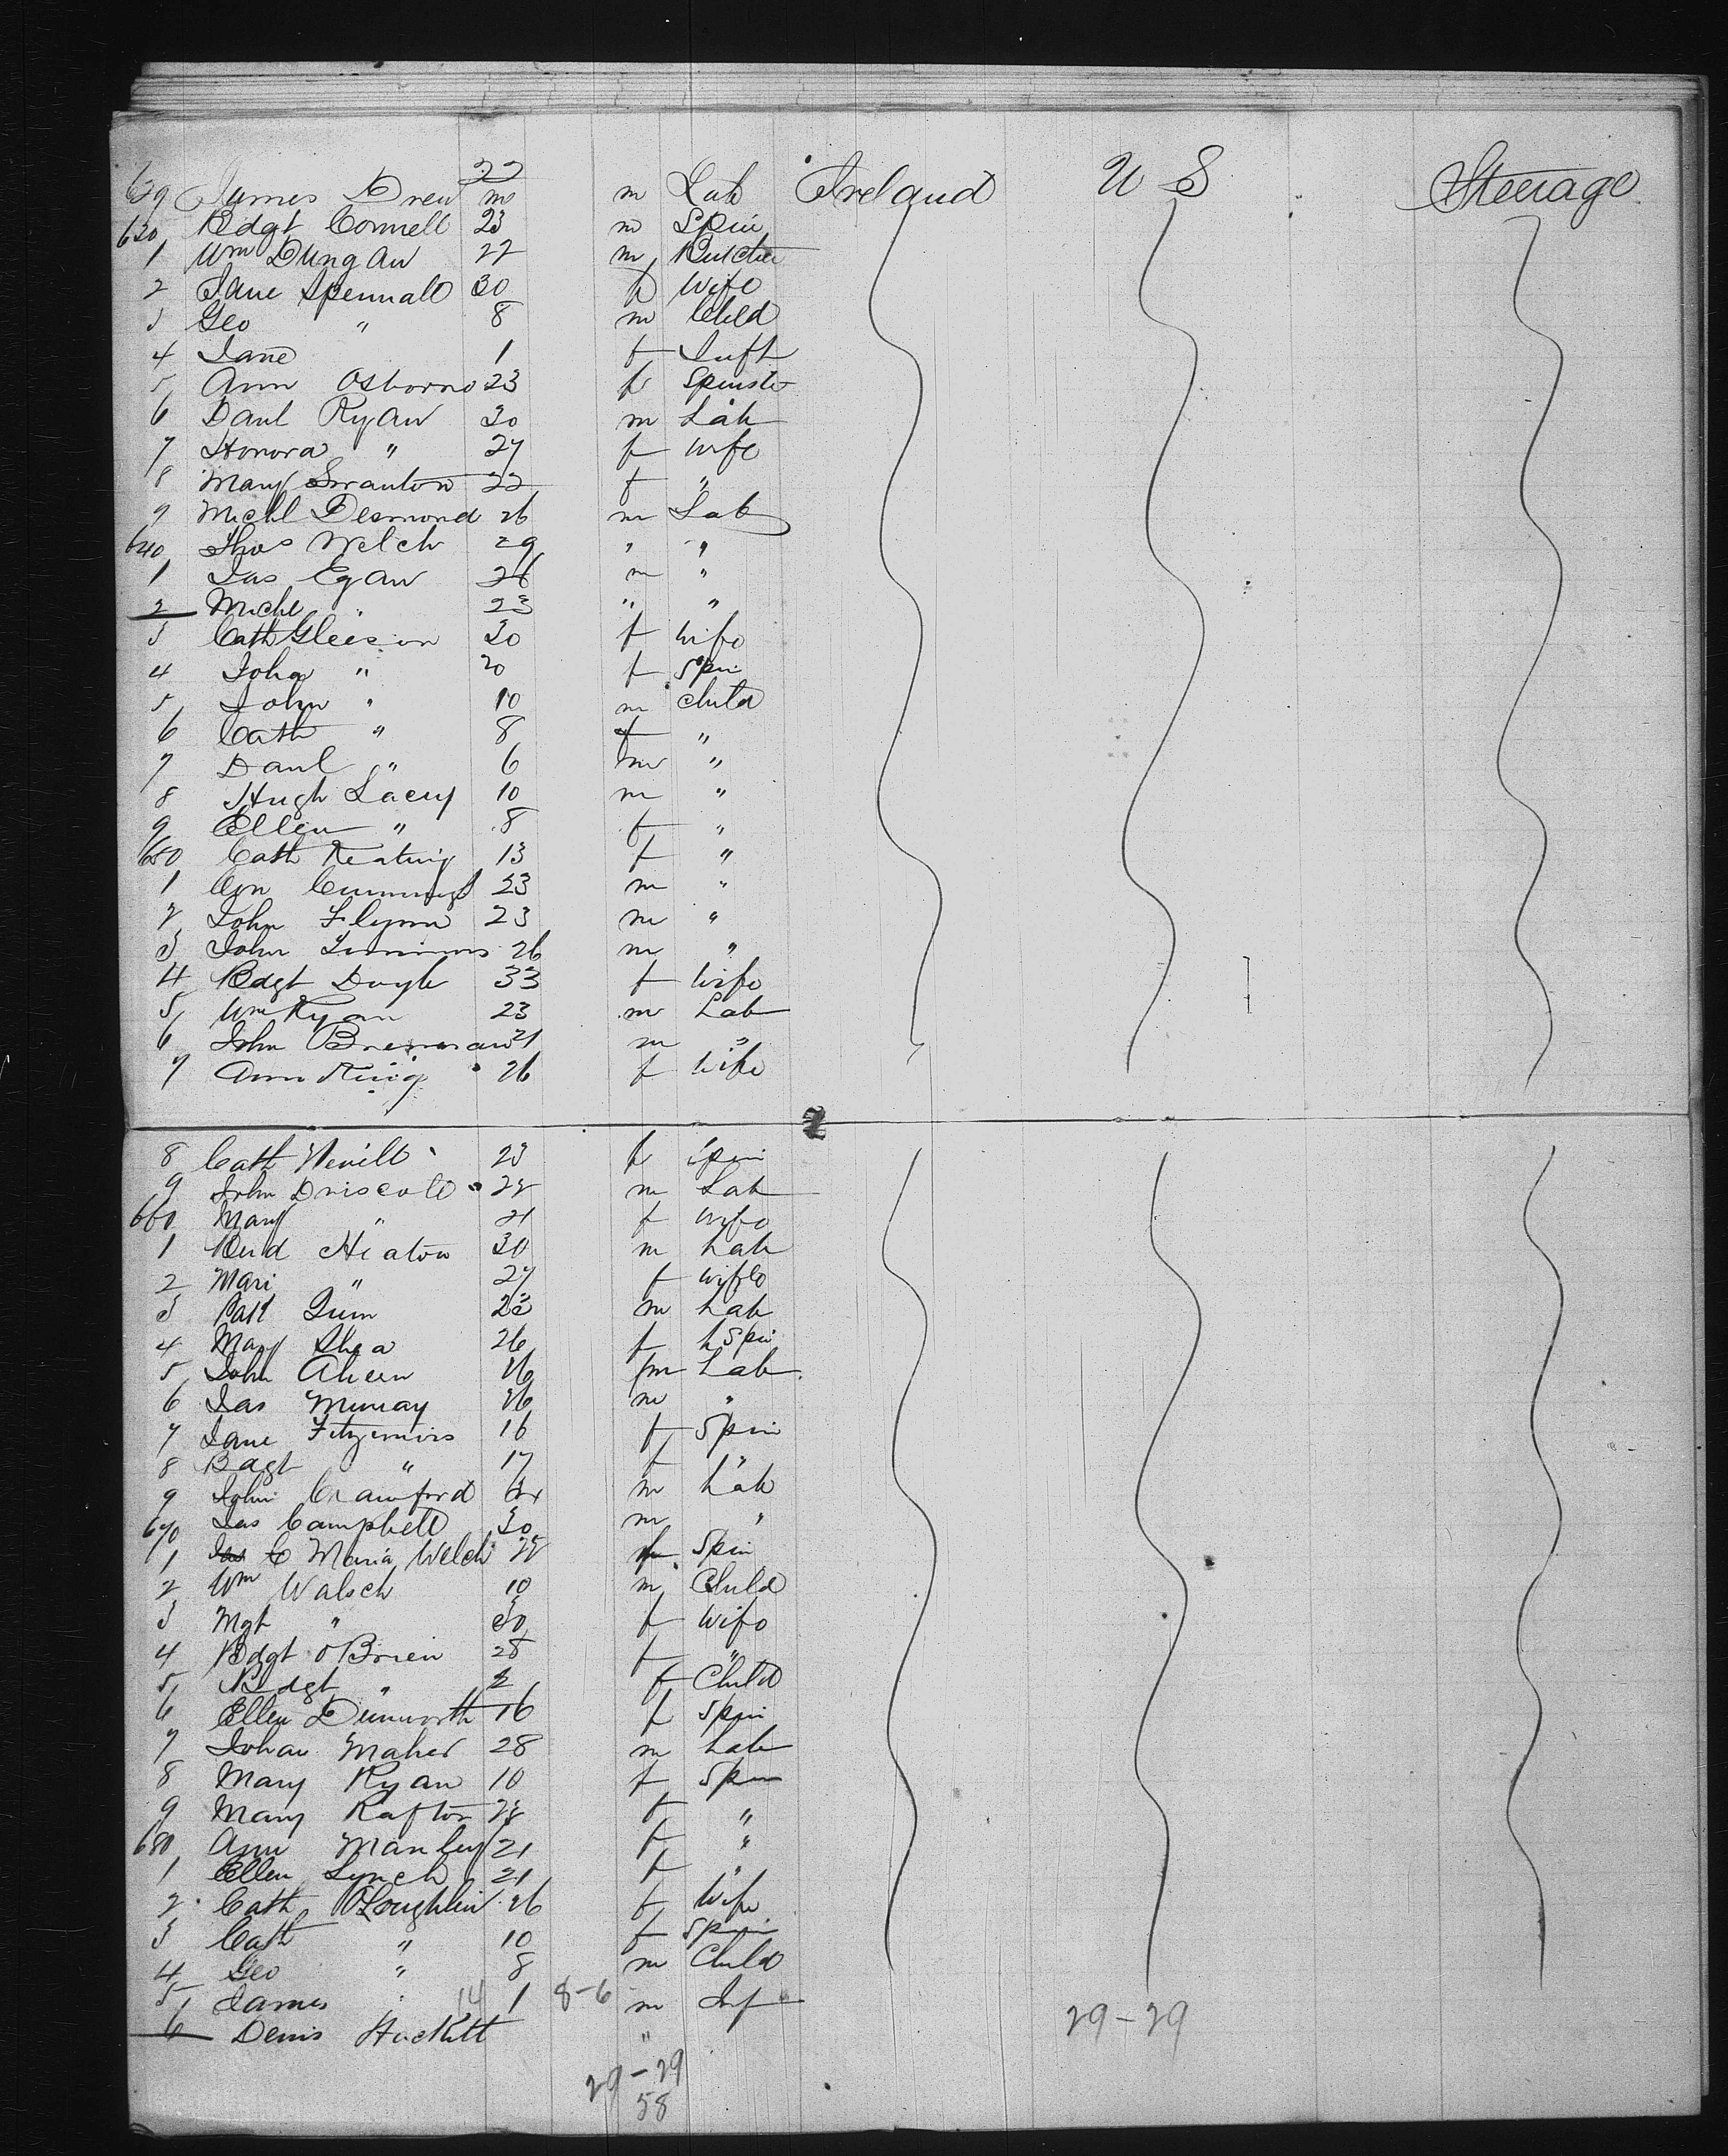 22
629 James Drew m m Lab Ireland U S Steerage
630 Bdgt Connell 23 m Spin
1 Wm Dungan 22 m Butcher
2 Jane Spennall 30 f Wife
3 Geo " 8 m Child
4 Jane 1 f Inft
5 Ann Osborne 23 f Spinster
6 Danl Ryan 30 m Lab
7 Honora " 27 f Wife
8 Mary Swanton 22 f "
9 Michl Desmond 26 m Lab
640 Thos Welch 29 " "
1 Jas Egan 26 m "
2 Michl " 23 " "
3 Cath Gleeson 30 f Wife
4 Joha " 20 f Spin
5 John " 10 m Child
6 Cath " 8 f "
7 Danl " 6 m "
8 Hugh Lacey 10 m "
9 Ellen " 8 f "
650 Cath Keating 13 f "
1 Con Cummings 23 m "
2 John Flynn 23 m "
3 John 26 m "
4 Bdgt Doyle 33 f Wife
5 Wm Ryan 23 m Lab
6 John Brennan 21 m "
7 Ann King 26 f Wife
2
8 Cath Nevill 23 f Spin
9 John Driscoll 22 m Lab
660 Mary " 21 f Wife
1 Heaton 30 m Lab
2 Mari " 27 f Wife
3 Patt Quin 23 m Lab
4 Mary Shea 26 f Spin
5 John Ahern 16 m Lab
6 Jas Murray 26 m "
7 Jane Fitzsimons 16 f Spin
8 Bdgt " 17 f "
9 John Crawford m Lab
670 Jas Campbell 30 m "
1 Jas C Maria Welch 22 f Spin
2 Wm Walsch 10 m Child
3 Mgt " 30 f Wife
4 Bdgt O Brien 28 f "
5 Bdgt " 2 f Child
6 Ellen Dunworth 16 f Spin
7 Johan Maher 28 m Lab
8 Mary Ryan 10 f Spin
9 Mary Rafton 22 f "
680 Ann Manley 21 f "
1 Ellen Lynch 21 f "
2 Cath O'Loughlin 26 f Wife
3 Cath " 10 f Spin
4 Geo " 8 m Child
5 James " 14 1 8-6 m Inf
6 Denis Hackitt " 29-29
29-29
58